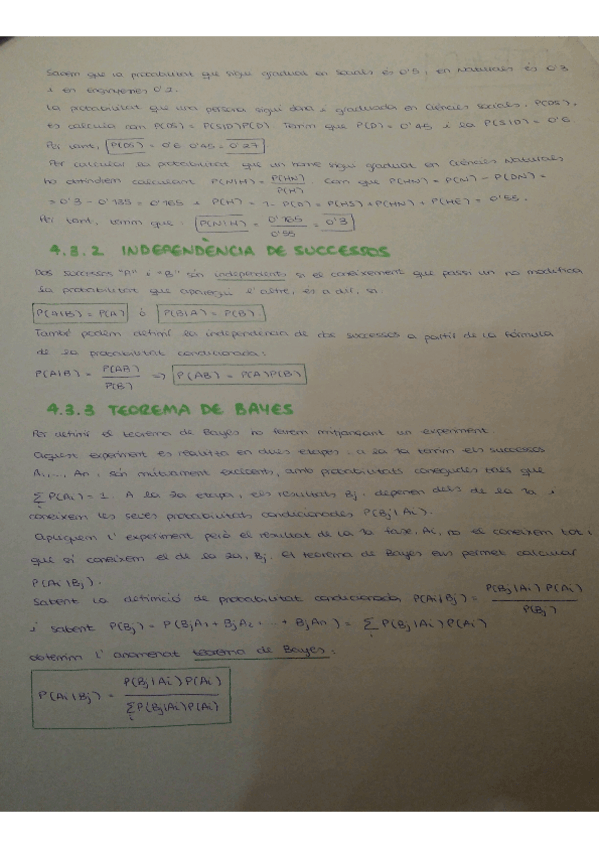 Sabem que la probabilitat que sigui graduat en socials és 0'5, en Naturals és 0'3
i en enginyeries 0'2.
La probabilitat que una persona sigui dona i graduada en Ciències Socials, P(DS),
es calcula com P(DS) = P(S|D)P(D). Tenim que P(D) = 0'45 i la P(S|D) = 0'6
Per tant, P(DS) = 0'6 · 0'45 = 0'27
Per calcular la probabilitat que un home sigui graduat en Ciències Naturals
ho calculant P(N|H) = P(HN)/P(H). Com que P(HN) = P(N) - P(DN) =
= 0'3 - 0'135 = 0'165 i P(H) = 1 - P(D) = P(HS) + P(HN) + P(HE) = 0'55.
Per tant, tenim que: P(N|H) = 0'165/0'55 = 0'3
4.3.2 INDEPENDÈNCIA DE SUCCESSOS
Dos successos "A" i "B" són independents si el coneixement que passi un no modifica
la probabilitat que aparegui l'altre, és a dir, si:
P(A|B) = P(A) ò P(B|A) = P(B).
També podem definir la independència de dos successos a partir de la fórmula
de la probabilitat condicionada:
P(A|B) = P(AB)/P(B) => P(AB) = P(A)P(B)
4.3.3 TEOREMA DE BAYES
Per definir el teorema de Bayes ho farem mitjançant un experiment.
Aquest experiment es realitza en dues etapes: a la 1a tenim els successos
A1,..., An, són mútuament excloents, amb probabilitats conegudes tals que
Σi P(Ai) = 1. A la 2a etapa, els resultats Bj, depenen dels de la 1a i
coneixem les seves probabilitats condicionades P(Bj|Ai).
Apliquem l'experiment però el resultat de la 1a fase, Ai, no el coneixem tot i
que si coneixem el de la 2a, Bj. El teorema de Bayes ens permet calcular
P(Ai|Bj).
Sabent la definició de probabilitat condicionada, P(Ai|Bj) = P(Bj|Ai) P(Ai)/P(Bj)
i sabent P(Bj) = P(BjA1 + BjA2 + ··· + BjAn) = Σi P(Bj|Ai)P(Ai)
obtenim l'anomenat teorema de Bayes:
P(Ai|Bj) = P(Bj|Ai)P(Ai)/Σi P(Bj|Ai)P(Ai)